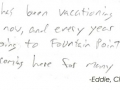 has been vacationing
now, and every year
going to Fountain Point
coming here for many
-Eddie, C